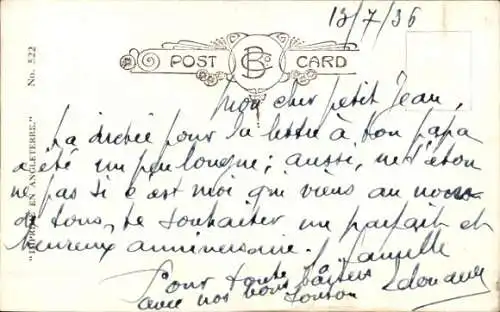 13/7/36
POST CARD
BC
No. 522
"IMPRIMÉ EN ANGLETERRE."
Mon cher petit Jean,
La dictée pour la lettre à ton papa
a été un peu longue; aussi, ne t'étonne
pas si c'est moi qui viens au nom
de tous, te souhaiter un parfait et
heureux anniversaire.
Pour toute la famille
avec nos bons baisers
Tonton Edouard